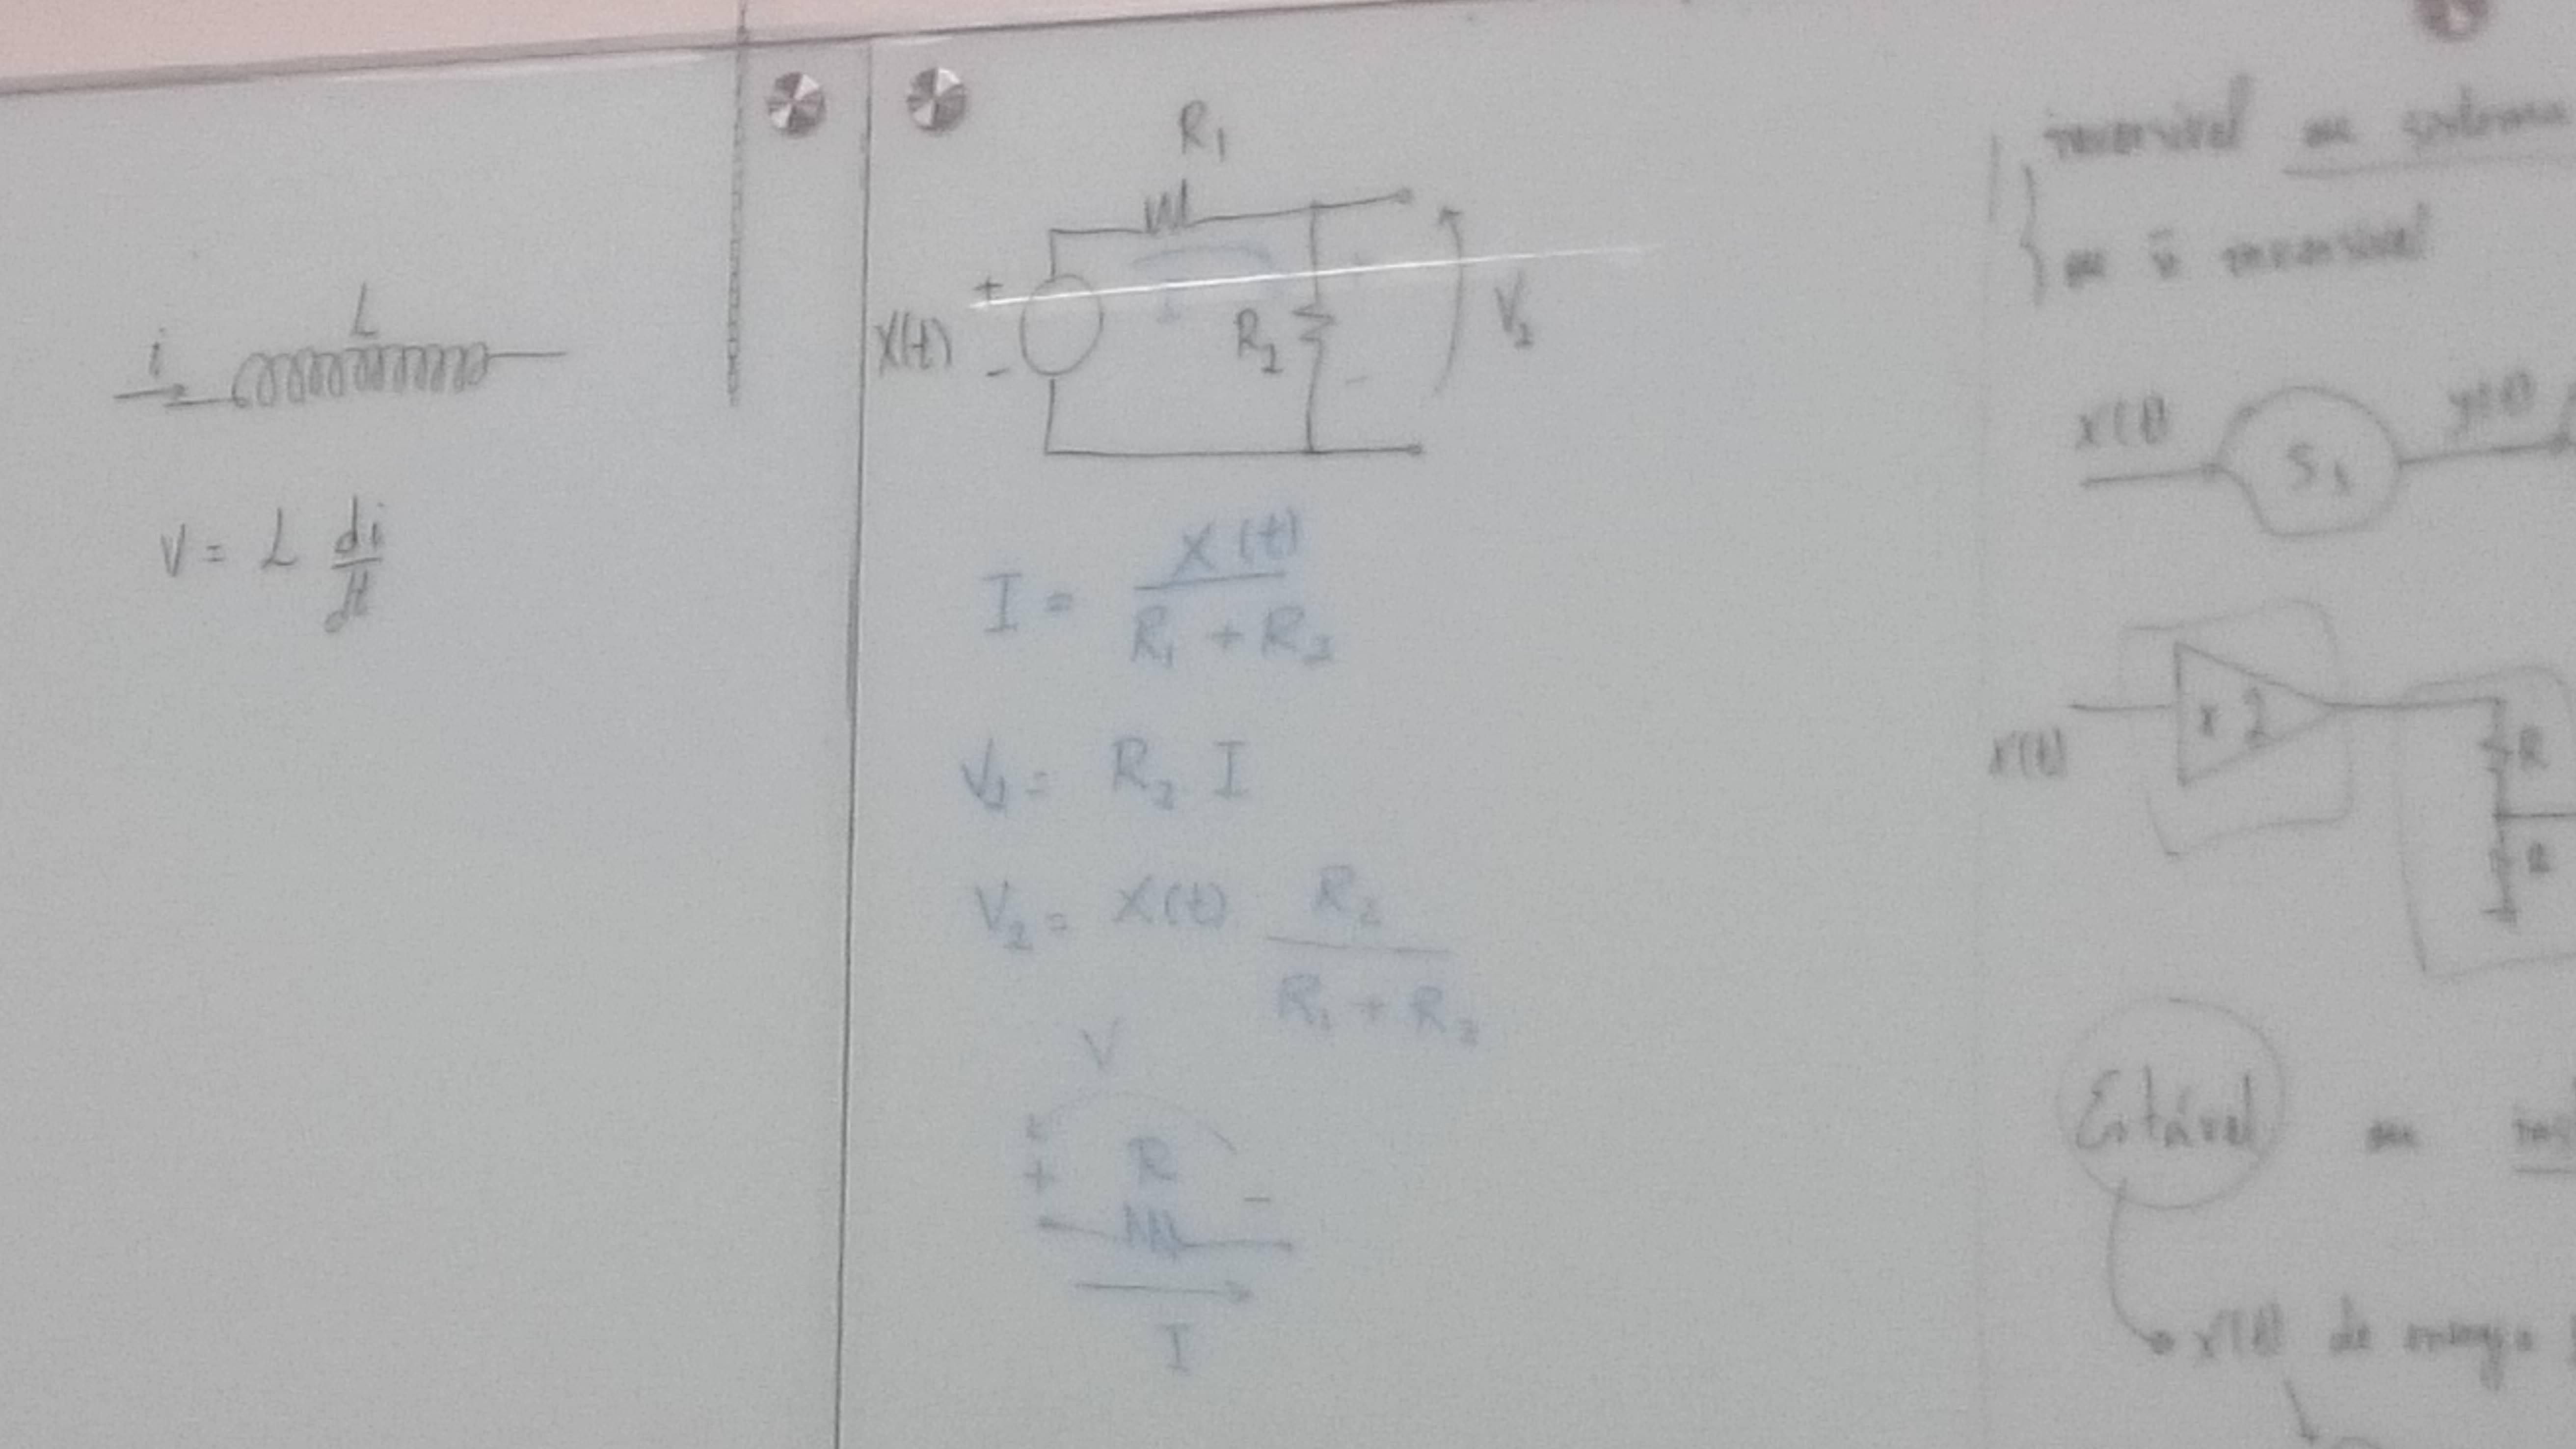 i
L
V = L di/dt
R1
X(t)
+
-
R2
V2
I
I = X(t) / (R1 + R2)
V1 = R2 I
V2 = X(t) R2 / (R1 + R2)
V
+ R -
I
inversível ou sistema
ou ñ inversível
x(t)
S1
y(t)
x(t)
x 2
R
R
Estável ou
x(t) de energia